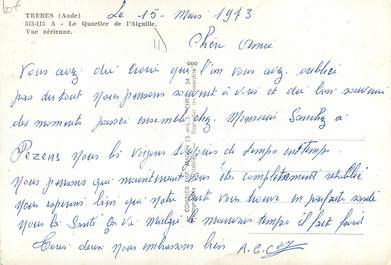 TRÈBES (Aude)
513-115 A - Le Quartier de l'Aiguille.
Vue aérienne.
Le 15 - Mars 1973
Chère Amie
Vous avez du croire que l'on vous avez oublié
pas du tout nous pensons souvent à vous et du bon souvenir
des moments passés ensemble chez Monsieur Sanchez a
Pezens nous les voyons toujours de temps en temps.
Nous pensons que maintenant vous êtes complètement rétablie
nous espérons bien que notre carte vous trouve en parfaite santé
Nous la Santé ça va malgré le mauvais temps il fait froid
Tous deux nous embrassons bien A.C.